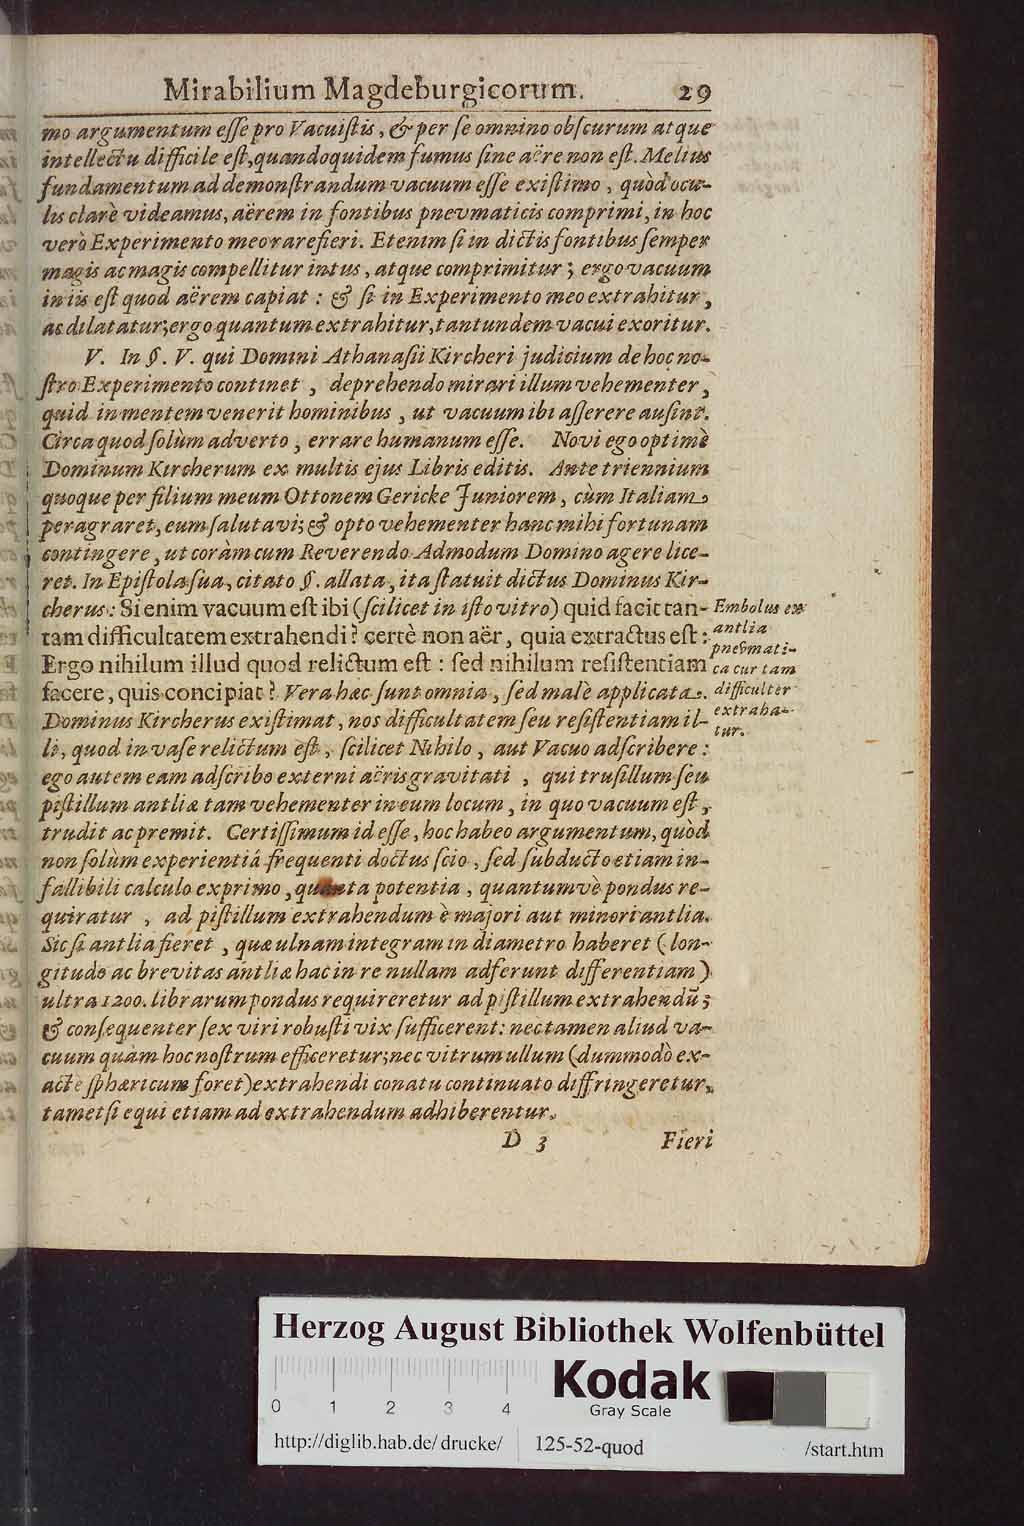 Mirabilium Magdeburgicorum. 29
mo argumentum eſſe pro Vacuiſtis, & per ſe omnino obſcurum atque
intellectu difficile eſt, quandoquidem fumus ſine aëre non eſt. Melius
fundamentum ad demonſtrandum vacuum eſſe exiſtimo, quòd ocu-
lis clarè videamus, aërem in fontibus pnevmaticis comprimi, in hoc
verò Experimento meo rarefieri. Etenim ſi in dictis fontibus ſemper
magis ac magis compellitur intus, atque comprimitur; ergo vacuum
in iis eſt quod aërem capiat: & ſi in Experimento meo extrahitur,
ac dilatatur; ergo quantum extrahitur, tantundem vacui exoritur.
V. In §. V. qui Domini Athanaſii Kircheri judicium de hoc no-
ſtro Experimento continet, deprehendo mirari illum vehementer,
quid in mentem venerit hominibus, ut vacuum ibi aſſerere auſint.
Circa quod ſolùm adverto, errare humanum eſſe. Novi ego optimè
Dominum Kircherum ex multis ejus Libris editis. Ante triennium
quoque per filium meum Ottonem Gericke Juniorem, cùm Italiam
peragraret, eum ſalutavi; & opto vehementer hanc mihi fortunam
contingere, ut coràm cum Reverendo Admodum Domino agere lice-
ret. In Epiſtola ſua, citato §. allata, ita ſtatuit dictus Dominus Kir-
cherus: Si enim vacuum eſt ibi (ſcilicet in iſto vitro) quid facit tan-
tam difficultatem extrahendi? certè non aër, quia extractus eſt:
Ergo nihilum illud quod relictum eſt: ſed nihilum reſiſtentiam
facere, quis concipiat? Vera hæc ſunt omnia, ſed malè applicata.
Dominus Kircherus exiſtimat, nos difficultatem ſeu reſiſtentiam il-
li, quod in vaſe relictum eſt, ſcilicet Nihilo, aut Vacuo adſcribere:
ego autem eam adſcribo externi aëris gravitati, qui truſillum ſeu
piſtillum antliæ tam vehementer in eum locum, in quo vacuum eſt,
trudit ac premit. Certiſſimum id eſſe, hoc habeo argumentum, quòd
non ſolùm experientiá frequenti doctus ſcio, ſed ſubducto etiam in-
fallibili calculo exprimo, quanta potentia, quantumvè pondus re-
quiratur, ad piſtillum extrahendum è majori aut minori antlia.
Sic ſi antlia fieret, quæ ulnam integram in diametro haberet (lon-
gitudo ac brevitas antliæ hac in re nullam adferunt differentiam)
ultra 1200. librarum pondus requireretur ad piſtillum extrahendū;
& conſequenter ſex viri robuſti vix ſufficerent: nec tamen aliud va-
cuum quàm hoc noſtrum efficeretur; nec vitrum ullum (dummodò ex-
actè ſphæricum foret) extrahendi conatu continuato diffringeretur,
tametſi equi etiam ad extrahendum adhiberentur.
D 3 Fieri
Embolus ex
antlia
pnevmati-
ca cur tam
difficulter
extraha-
tur.
Herzog August Bibliothek Wolfenbüttel
0 1 2 3 4
Kodak
Gray Scale
http://diglib.hab.de/drucke/ 125-52-quod /start.htm